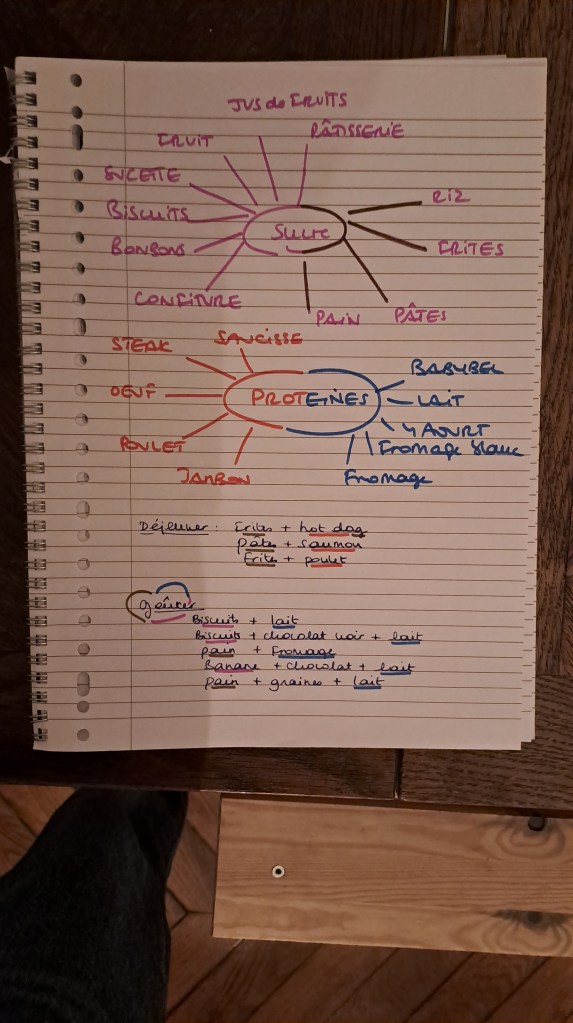 JUS de FRUITS
FRUIT
PÂTISSERIE
SUCETTE
BISCUITS
BONBONS
CONFITURE
Sucre
RIZ
FRITES
PÂTES
PAIN
STEAK
SAUCISSE
OEUF
POULET
JAMBON
PROTEINES
BABYBEL
LAIT
YAOURT
Fromage blanc
Fromage
Déjeuner : Frites + hot dog
pâtes + Saumon
Frites + poulet
goûter
Biscuits + lait
Biscuits + chocolat noir + lait
pain + Fromage
Banane + chocolat + lait
pain + graines + lait